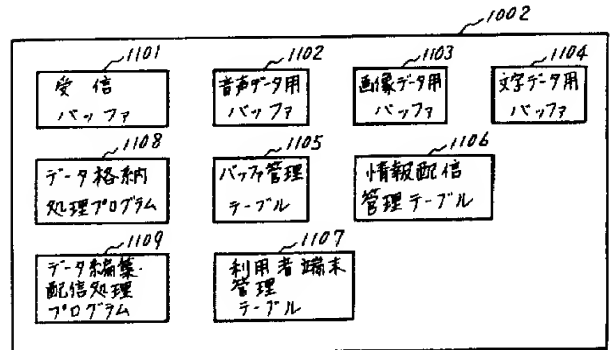 1002
1101
受信
バッファ
1102
音声データ用
バッファ
1103
画像データ用
バッファ
1104
文字データ用
バッファ
1108
データ格納
処理プログラム
1105
バッファ管理
テーブル
1106
情報配信
管理テーブル
1109
データ編集・
配信処理
プログラム
1107
利用者端末
管理
テーブル